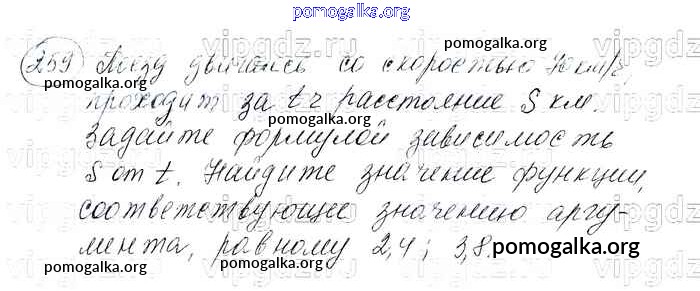 pomogalka.org
259) Поезд двигаясь со скоростью 70 км/ч,
проходит за t ч расстояние S км.
Задайте формулой зависимость
S от t. Найдите значение функции,
соответствующее значению аргу-
мента, равному 2,4; 3,8.
pomogalka.org
pomogalka.org
pomogalka.org
pomogalka.org
pomogalka.org
pomogalka.org
pomogalka.org
pomogalka.org
pomogalka.org